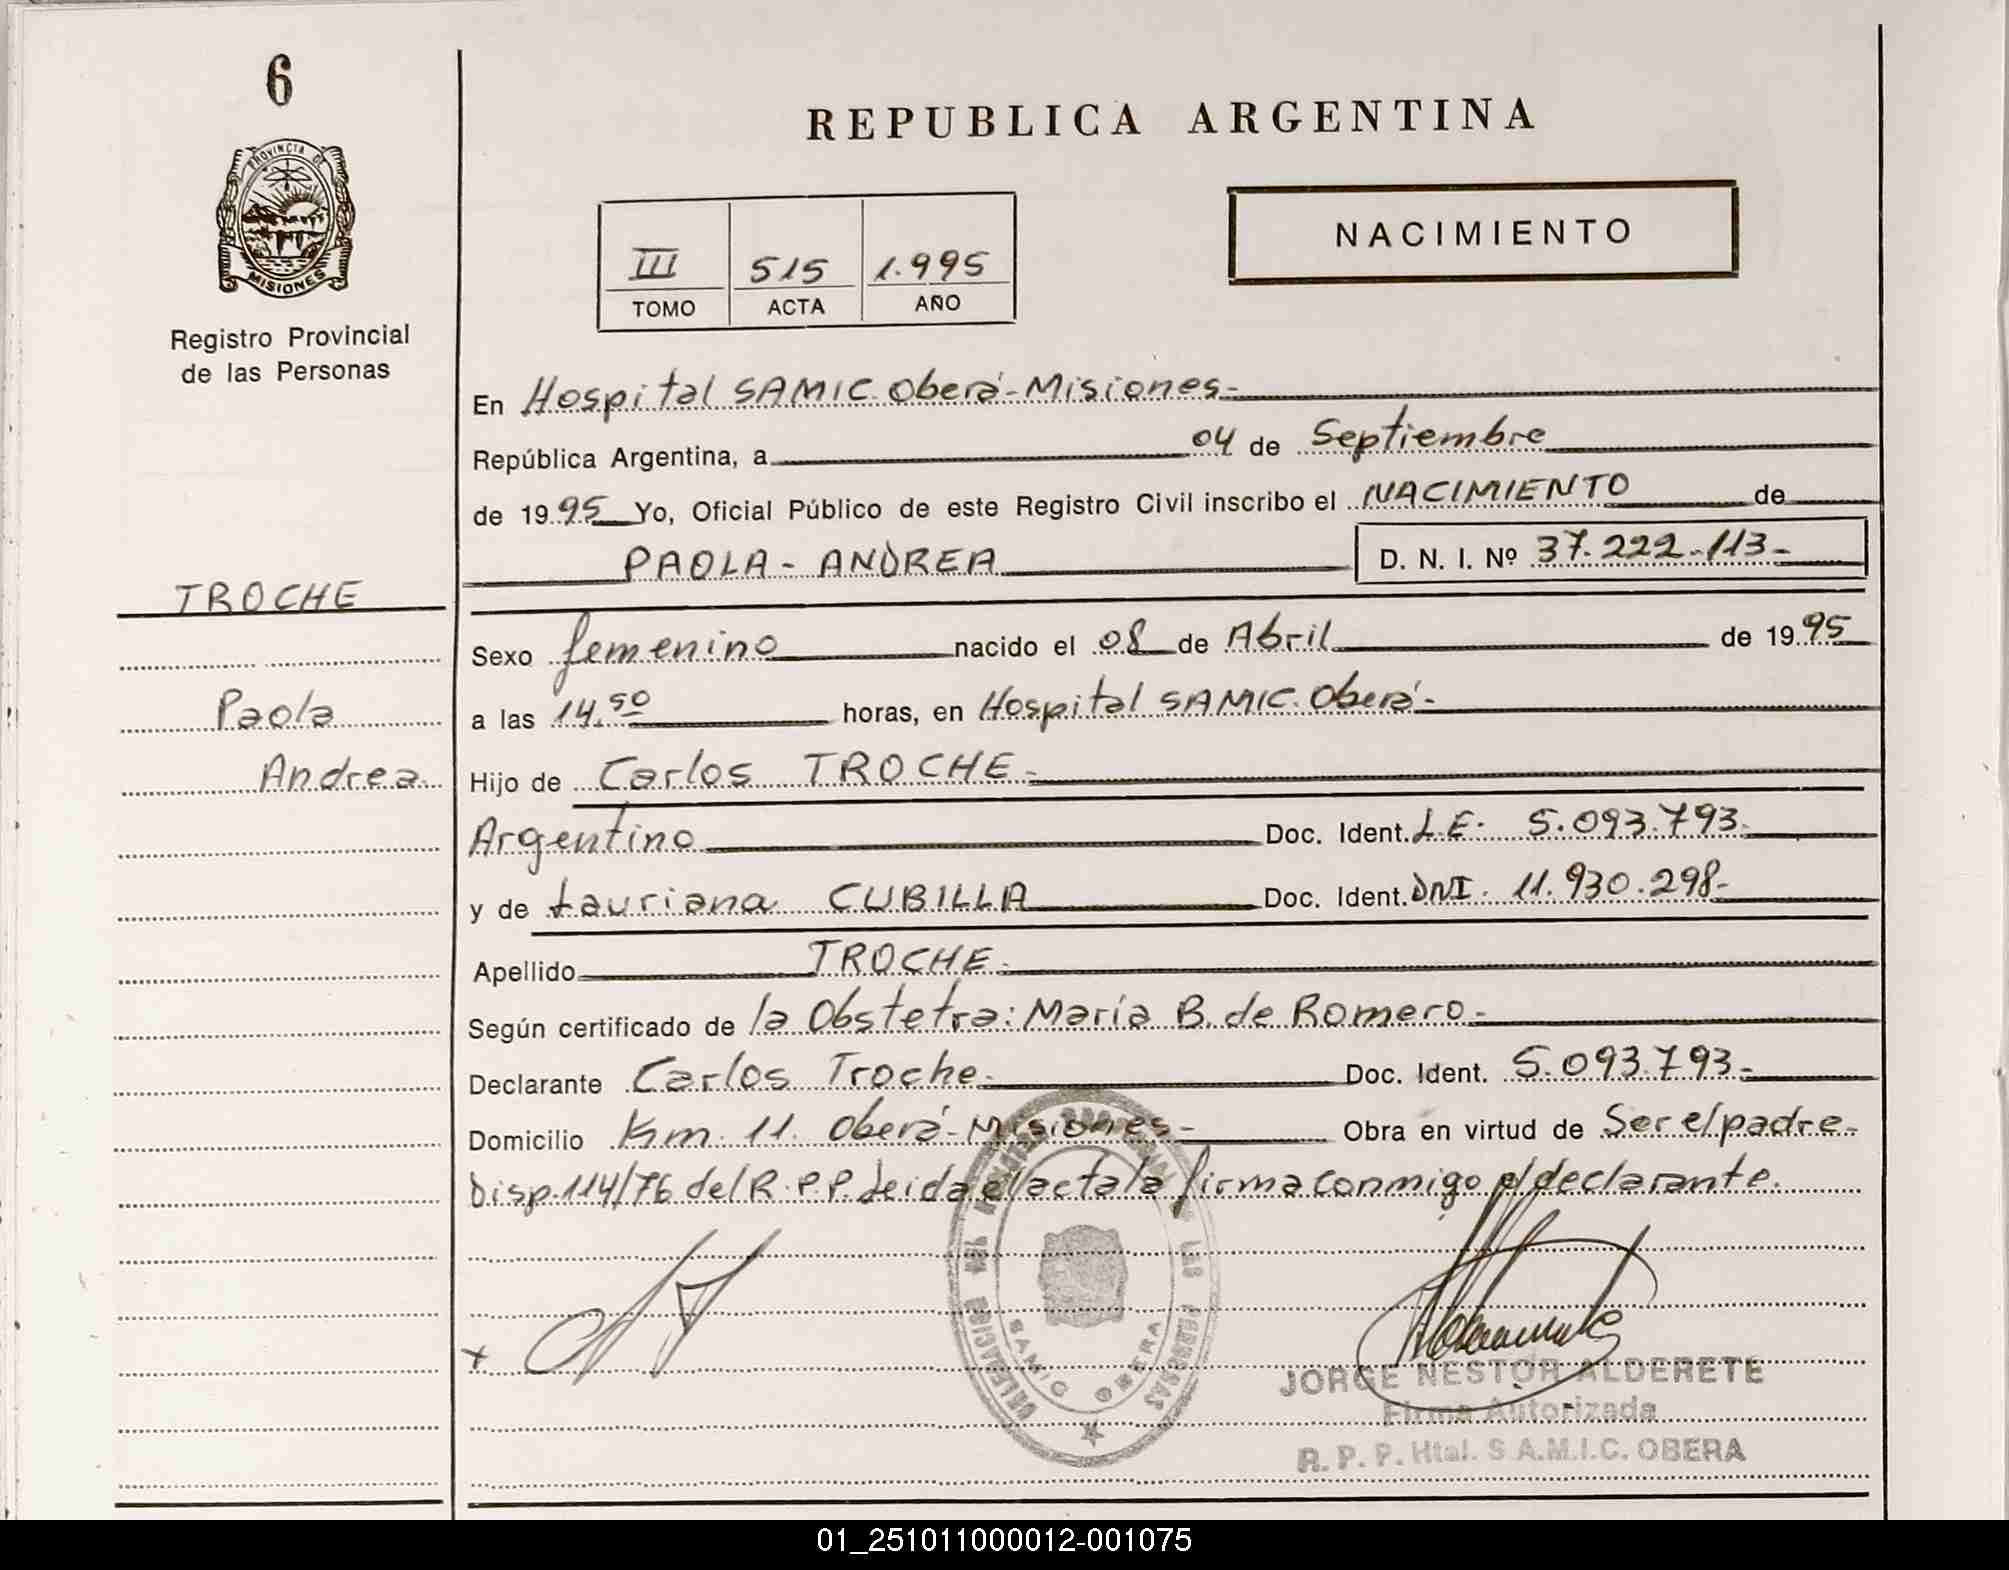 6
PROVINCIA DE
MISIONES
Registro Provincial
de las Personas
REPUBLICA ARGENTINA
III 515 1.995
TOMO ACTA AÑO
NACIMIENTO
En Hospital SAMIC. Oberá-Misiones-
República Argentina, a 04 de Septiembre
de 1995 Yo, Oficial Público de este Registro Civil inscribo el NACIMIENTO de
PAOLA - ANDREA D. N. I. Nº 37.222.113-
TROCHE
Paola
Andrea
Sexo femenino nacido el 08 de Abril de 1995
a las 14.50 horas, en Hospital SAMIC. Oberá-
Hijo de Carlos TROCHE-
Argentino Doc. Ident. L.E. 5.093.793-
y de Lauriana CUBILLA Doc. Ident. DNI. 11.930.298-
Apellido TROCHE-
Según certificado de la Obstetra: María B. de Romero-
Declarante Carlos Troche- Doc. Ident. 5.093.793-
Domicilio Km. 11. Oberá-Misiones- Obra en virtud de Ser el padre-
Disp.114/76 del R.P.P. Leida el acta la firma conmigo el declarante.
DELEGACION DEL REGISTRO PROVINCIAL DE LAS PERSONAS
SAMIC OBERA
JORGE NESTOR ALDERETE
Firma Autorizada
R. P. P. Htal. S.A.M.I.C. OBERA
01_251011000012-001075